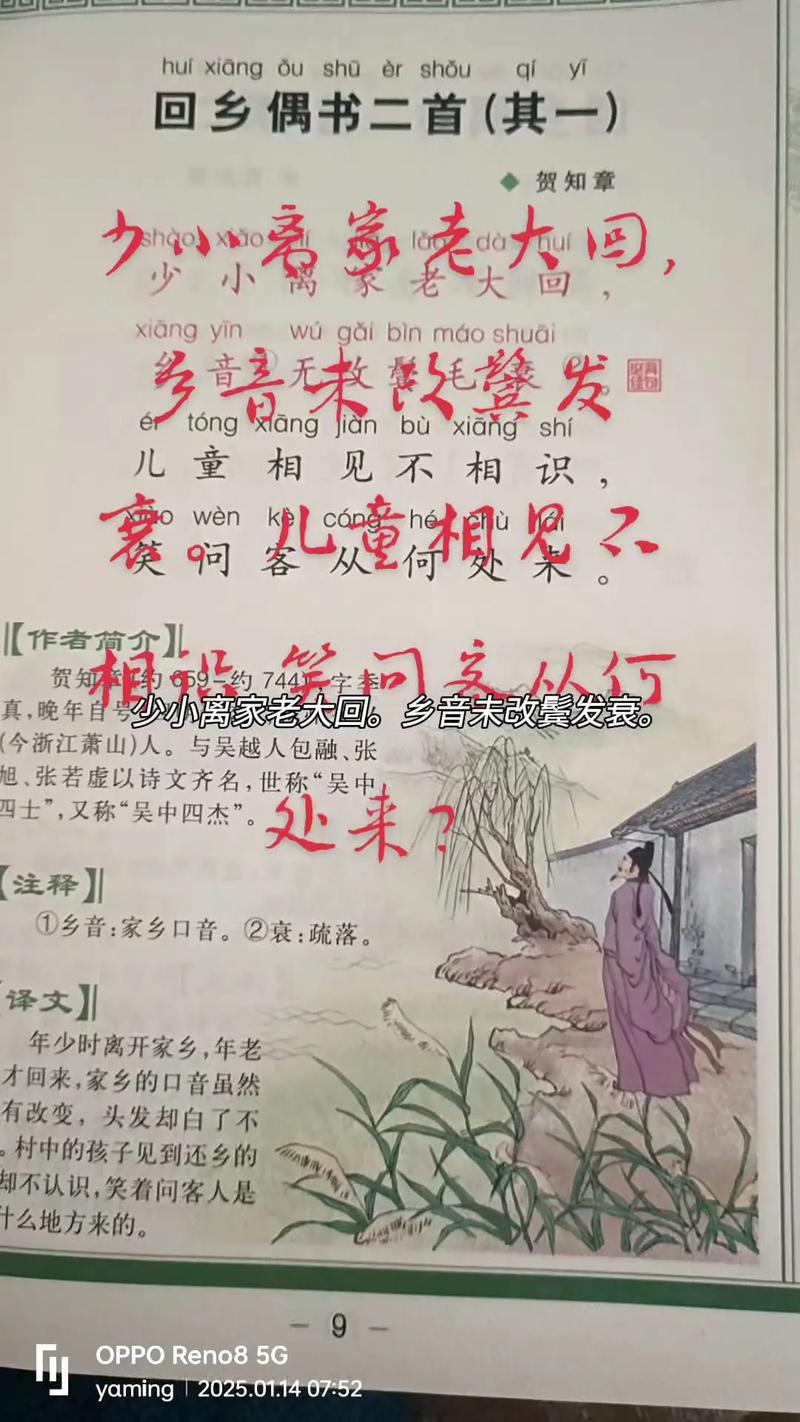 huí xiāng ǒu shū èr shǒu qí yī
回乡偶书二首(其一)
◆ 贺知章
少小离家老大回，
shào xiǎo lí lǎo dà huí
少小离家老大回，
xiāng yīn wú gǎi bìn máo shuāi
乡音无改鬓毛衰。
乡音未改鬓发
ér tóng xiāng jiàn bù xiāng shí
儿童相见不相识，
衰。儿童相见不
xiào wèn kè cóng hé chù lái
笑问客从何处来。
【作者简介】
相识 笑问 从何
贺知章(约659－约744)，字季
真，晚年自号
少小离家老大回。乡音未改鬓发衰。
(今浙江萧山)人。与吴越人包融、张
旭、张若虚以诗文齐名，世称“吴中
四士”，又称“吴中四杰”。
处来？
【注释】
①乡音：家乡口音。②衰：疏落。
译文】
年少时离开家乡，年老
才回来，家乡的口音虽然
有改变，头发却白了不
。村中的孩子见到还乡的
却不认识，笑着问客人是
什么地方来的。
－ 9 －
OPPO Reno8 5G
yaming | 2025.01.14 07:52